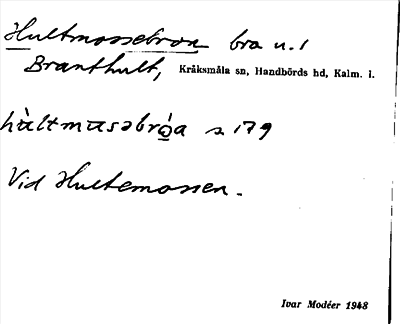 Hultmossebron bro u. 1
Branthult, Kråksmåla sn, Handbörds hd, Kalm. l.
hùltmusəbróa s. 179
Vid Hultemossen.
Ivar Modéer 1948